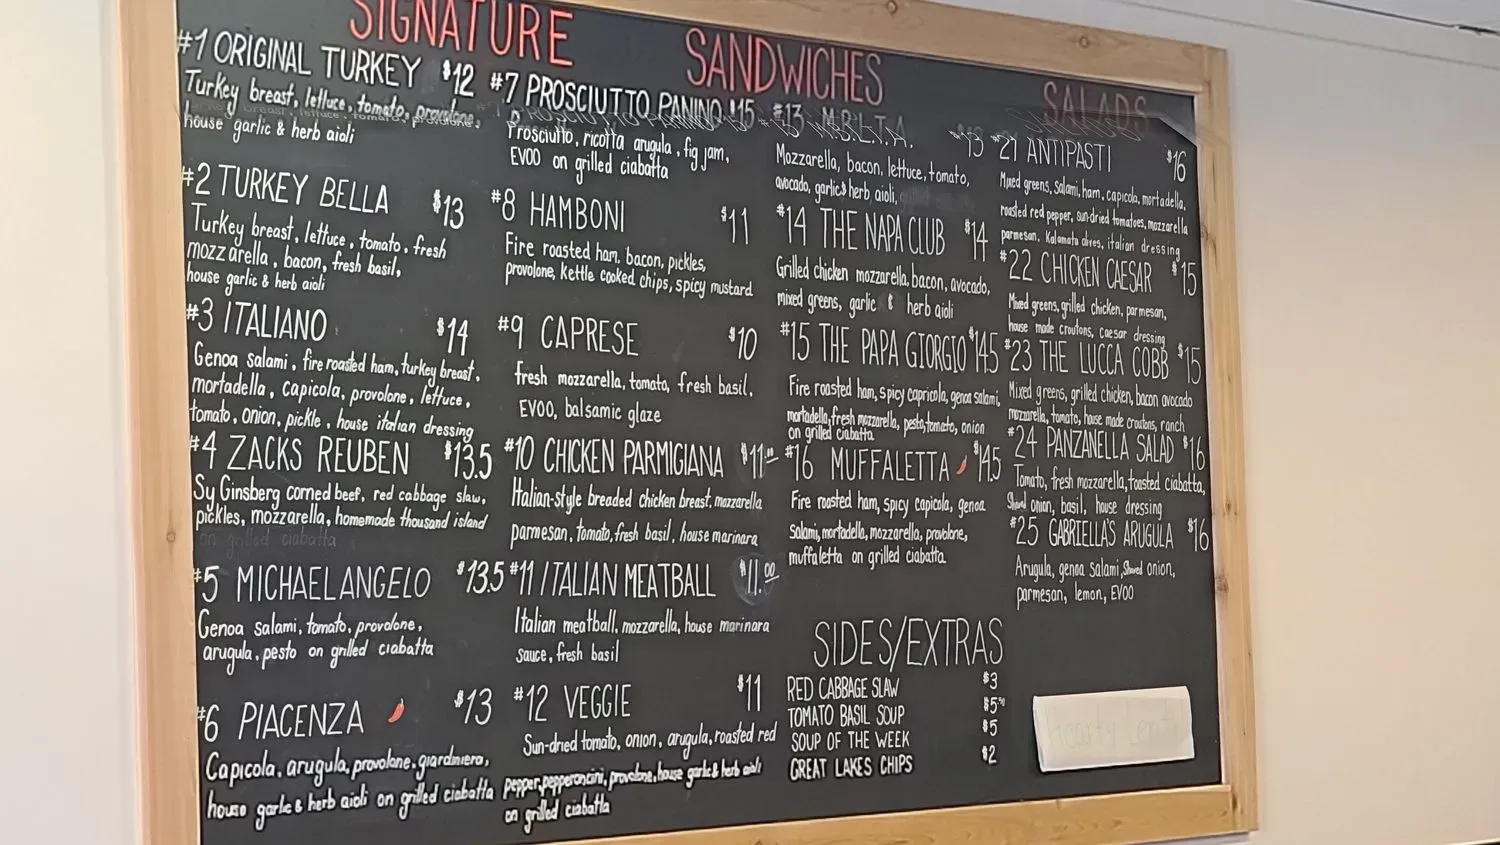 SIGNATURE SANDWICHES
#1 ORIGINAL TURKEY $12
Turkey breast, lettuce, tomato, provolone,
house garlic & herb aioli
#2 TURKEY BELLA $13
Turkey breast, lettuce, tomato, fresh
mozzarella, bacon, fresh basil,
house garlic & herb aioli
#3 ITALIANO $14
Genoa salami, fire roasted ham, turkey breast,
mortadella, capicola, provolone, lettuce,
tomato, onion, pickle, house italian dressing
#4 ZACKS REUBEN $13.5
Sy Ginsberg corned beef, red cabbage slaw,
pickles, mozzarella, homemade thousand island
on grilled ciabatta
#5 MICHAELANGELO $13.5
Genoa salami, tomato, provolone,
arugula, pesto on grilled ciabatta
#6 PIACENZA $13
Capicola, arugula, provolone, giardiniera,
house garlic & herb aioli on grilled ciabatta
#7 PROSCIUTTO PANINO $15
Prosciutto, ricotta arugula, fig jam,
EVOO on grilled ciabatta
#8 HAMBONI $11
Fire roasted ham, bacon, pickles,
provolone, kettle cooked chips, spicy mustard
#9 CAPRESE $10
fresh mozzarella, tomato, fresh basil,
EVOO, balsamic glaze
#10 CHICKEN PARMIGIANA $11.00
Italian-style breaded chicken breast, mozzarella
parmesan, tomato, fresh basil, house marinara
#11 ITALIAN MEATBALL $11.00
Italian meatball, mozzarella, house marinara
sauce, fresh basil
#12 VEGGIE $11
Sun-dried tomato, onion, arugula, roasted red
pepper, pepperoncini, provolone, house garlic & herb aioli
on grilled ciabatta
#13 M.B.L.T.A. $13
Mozzarella, bacon, lettuce, tomato,
avocado, garlic & herb aioli,
#14 THE NAPA CLUB $14
Grilled chicken mozzarella, bacon, avocado,
mixed greens, garlic & herb aioli
#15 THE PAPA GIORGIO $14.5
Fire roasted ham, spicy capricola, genoa salami,
mortadella, fresh mozzarella, pesto, tomato, onion
on grilled ciabatta
#16 MUFFALETTA $14.5
Fire roasted ham, spicy capicola, genoa
salami, mortadella, mozzarella, provolone,
muffaletta on grilled ciabatta
SIDES/EXTRAS
RED CABBAGE SLAW $3
TOMATO BASIL SOUP $5.50
SOUP OF THE WEEK $5
GREAT LAKES CHIPS $2
SALADS
#21 ANTIPASTI $16
Mixed greens, salami, ham, capicola, mortadella,
roasted red pepper, sun-dried tomatoes, mozzarella
parmesan, Kalamata olives, italian dressing
#22 CHICKEN CAESAR $15
Mixed greens, grilled chicken, parmesan,
house made croutons, caesar dressing
#23 THE LUCCA COBB $15
Mixed greens, grilled chicken, bacon avocado
mozzarella, tomato, house made croutons, ranch
#24 PANZANELLA SALAD $16
Tomato, fresh mozzarella, toasted ciabatta,
Shaved onion, basil, house dressing
#25 GABRIELLA'S ARUGULA $16
Arugula, genoa salami, Shaved onion,
parmesan, lemon, EVOO
Hearty